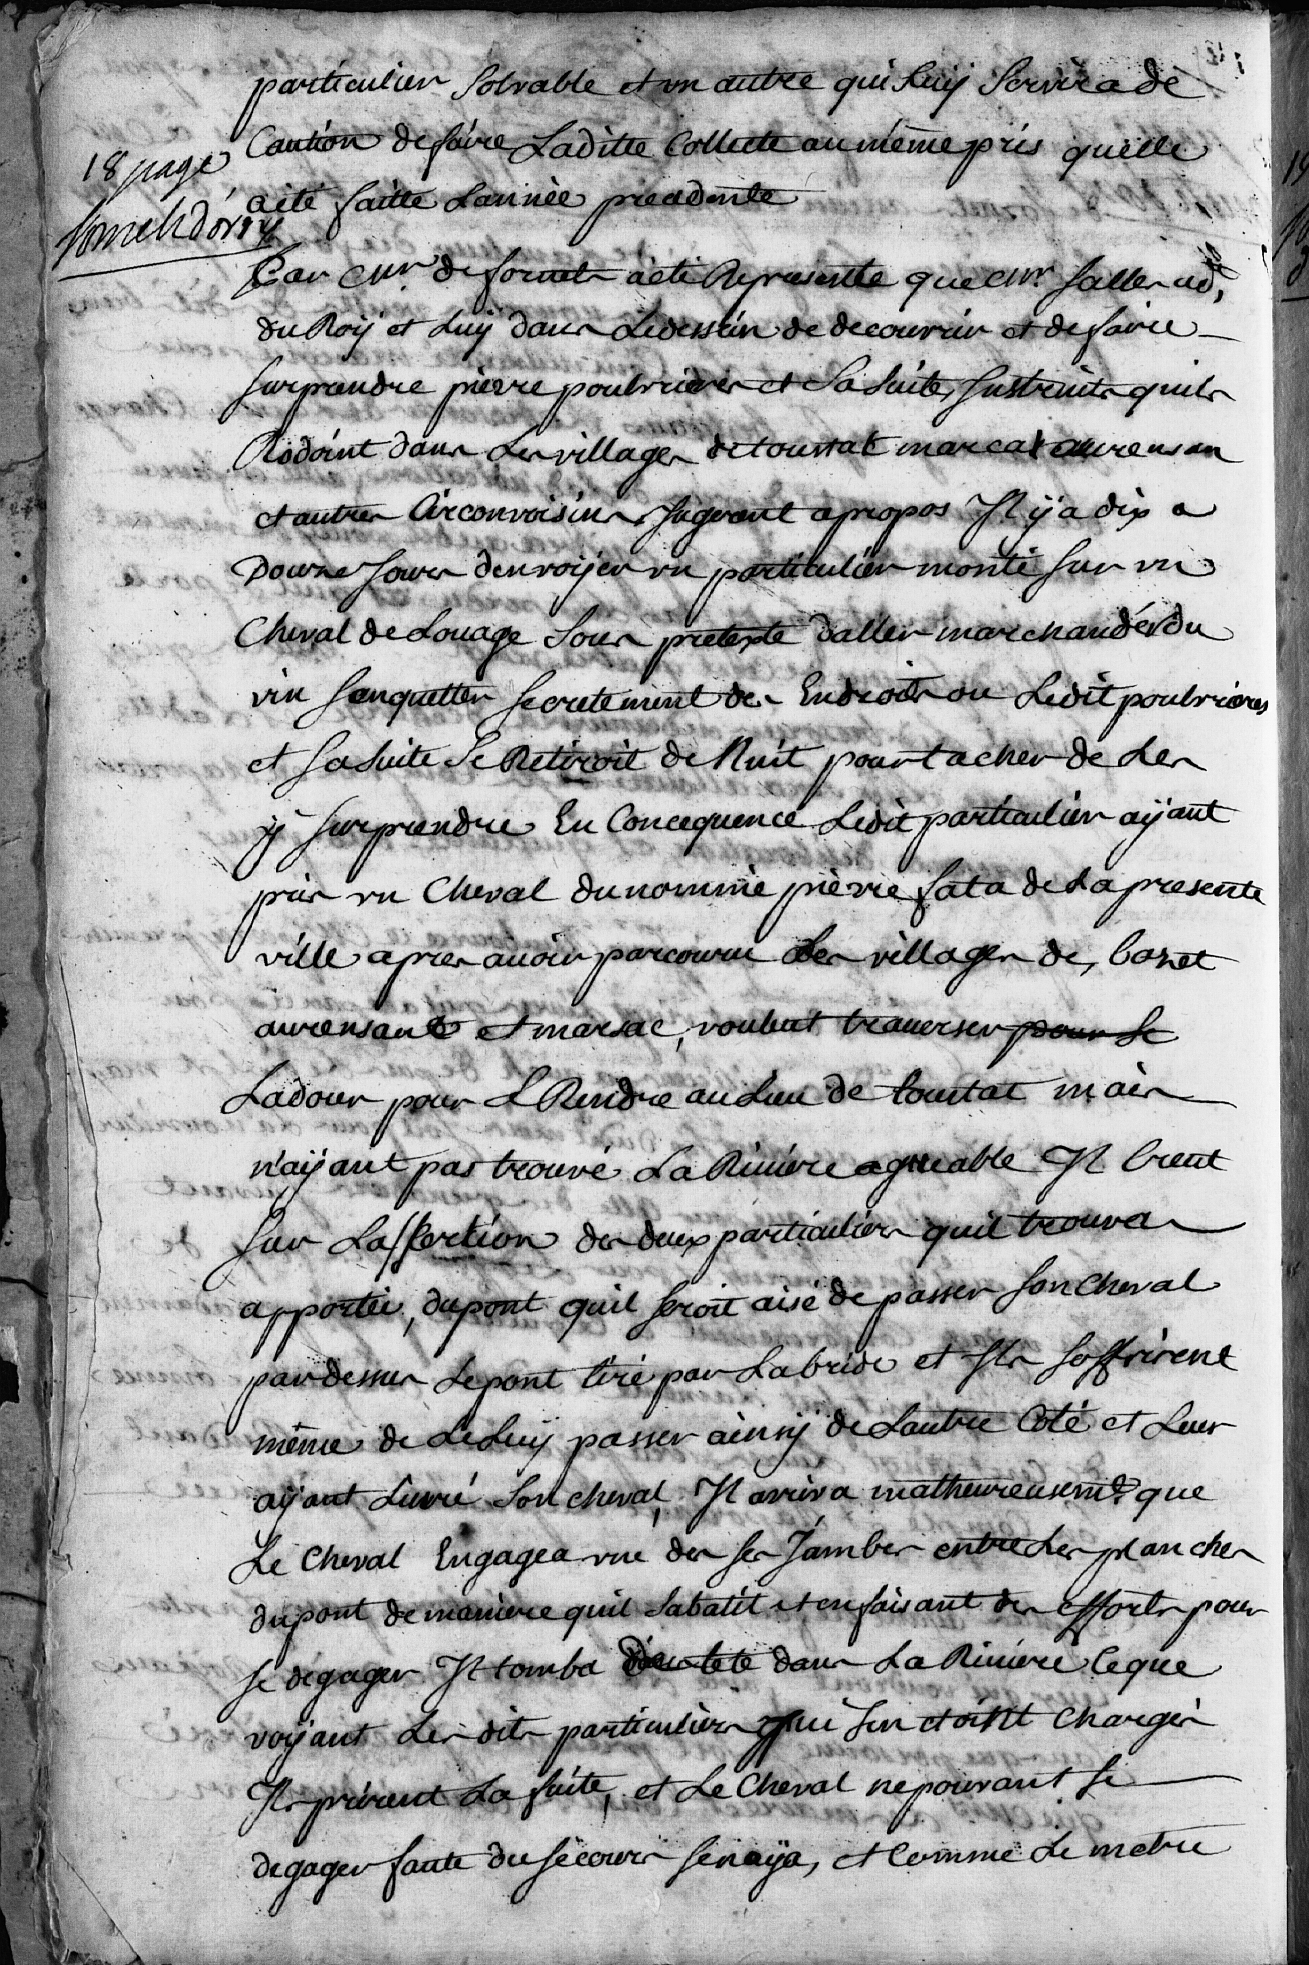 particulier Solvable et un autre qui Luy Servira de
Caution de faire Laditte Collecte au même pris quelle
18 page
a eté faitte Lannèe precedente
Par Mr. de fornets a eté Represente que Mr. Salles ad.
du Roy et Luy dans Ledessein de decouvrir et de faire
surprendre pierre poubrieres et Sa suite, Instruits quils
Rodoint dans Les villages de toustat marcat aurensan
et autres Circonvoisins, Jugerent apropos Il y a dix a
Douze Jours denvoÿer un particulier monté sur un
Cheval de Louage Sous pretexte daller marchander du
vin Senquetter secretement des Endroits ou Ledit poubrieres
et Sa Suite Se Retiroit de Nuit pour tacher de Les
y surprendre En Concequence Ledit particulier aÿant
pris un Cheval du nommè pierre fata de La presente
ville apres auoir parcouru Les villages de, bazet
aurensant et marsac, voulut trauerser pour Se
Ladour pour S Rendre au Lieu de toustat mais
n'aÿant pas trouvé La Riuiere agueable Il Creut
sur Lassertion des deux particuliers quil trouva
apportèe, du pont quil seroit aisé de passer son cheval
par dessus Le pont tiré par La bride et Ils soffrirent
même de Le Luy passer ainsy de Lautre Coté et Leur
aÿant Livré Son cheval, Il arriva malheureusemt. que
Le cheval Engagea une des ses Jambes entre Les planches
du pont de maniere quil Sabatit et en faisant des efforts pour
se degager Il tomba dans La Riuiere Ceque
voÿant Les dits particuliers qui sen etoint chargés
Ils prirent La fuite, et Le Cheval ne pouvant se
degager faute du secours se naÿa, et Comme Le metre